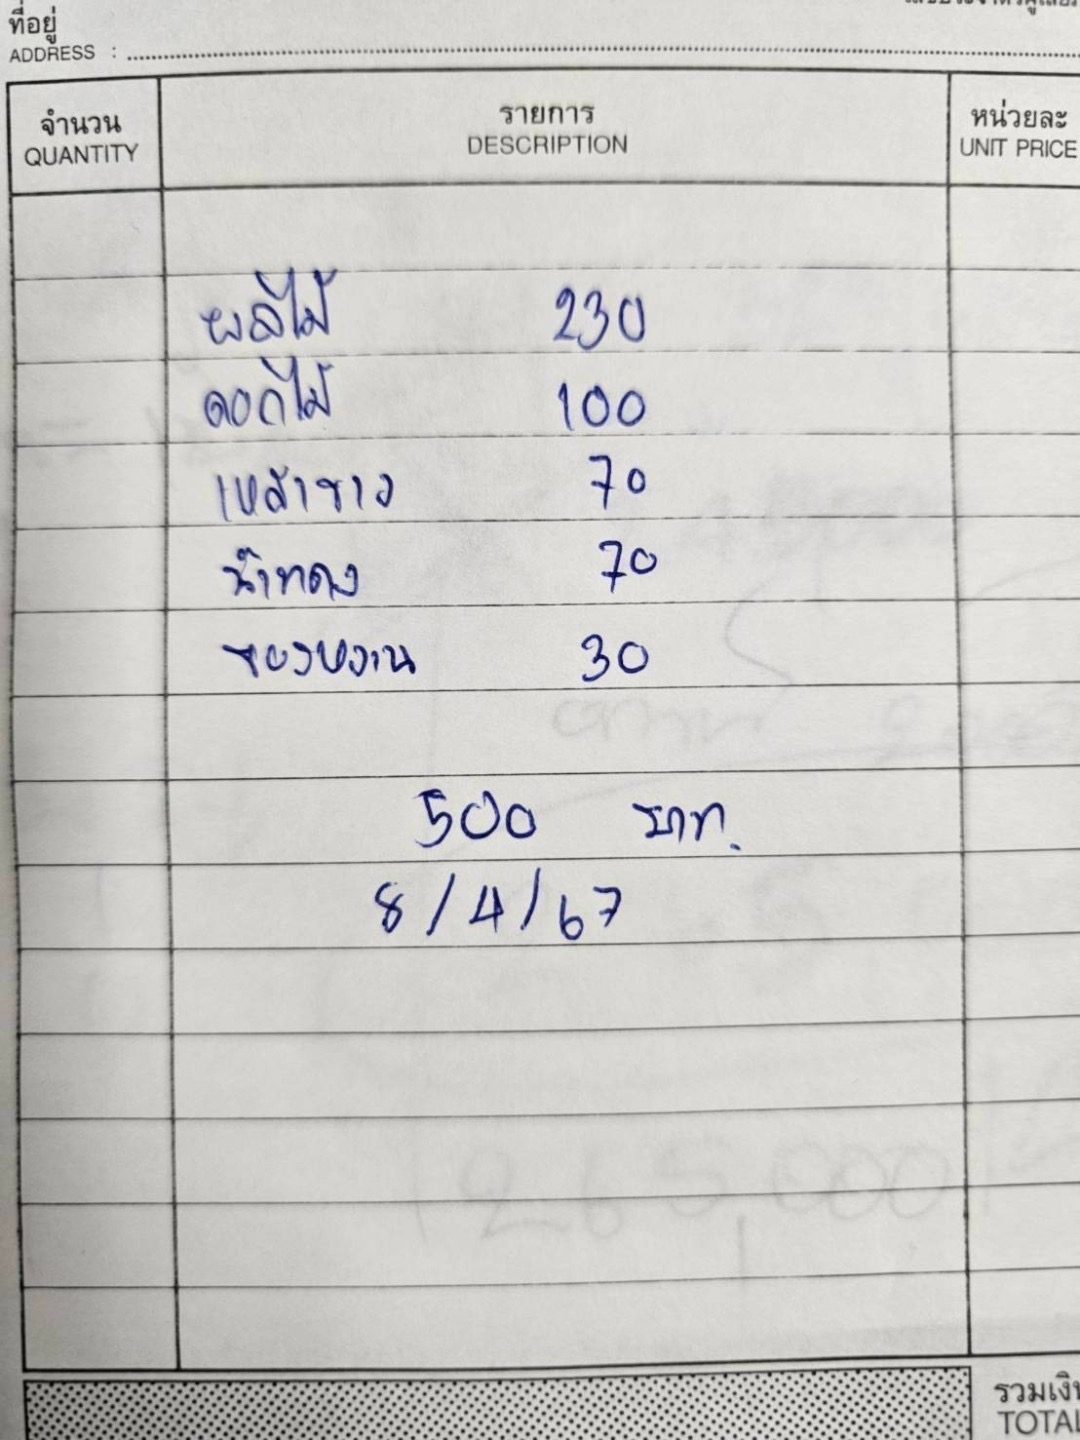 ที่อยู่
ADDRESS :
จำนวน รายการ หน่วยละ
QUANTITY DESCRIPTION UNIT PRICE
ผลไม้ 230
ดอกไม้ 100
เหล้าขาว 70
น้ำแดง 70
ของหวาน 30
500 บาท.
8/4/67
265,000
รวมเงิน
TOTAL